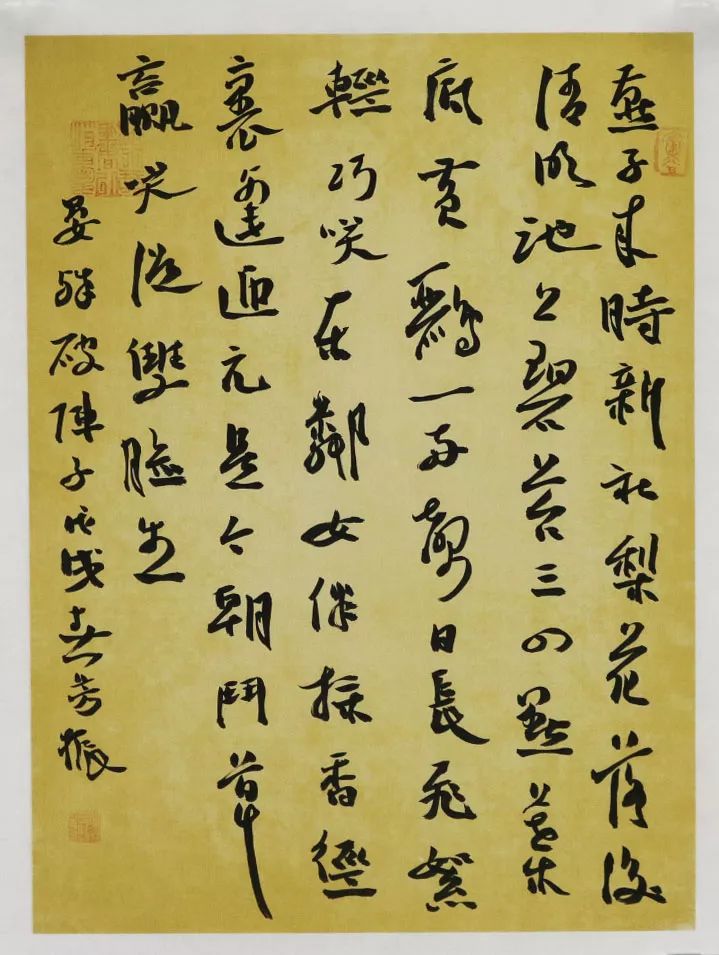 燕子来時新社梨花落後
清明池上碧苔三四點葉
底黄鸝一兩聲日長飛絮
輕巧笑東鄰女伴採香徑
裏逢迎元是今朝鬥草
贏笑從雙臉生
晏殊破陣子戊戌振